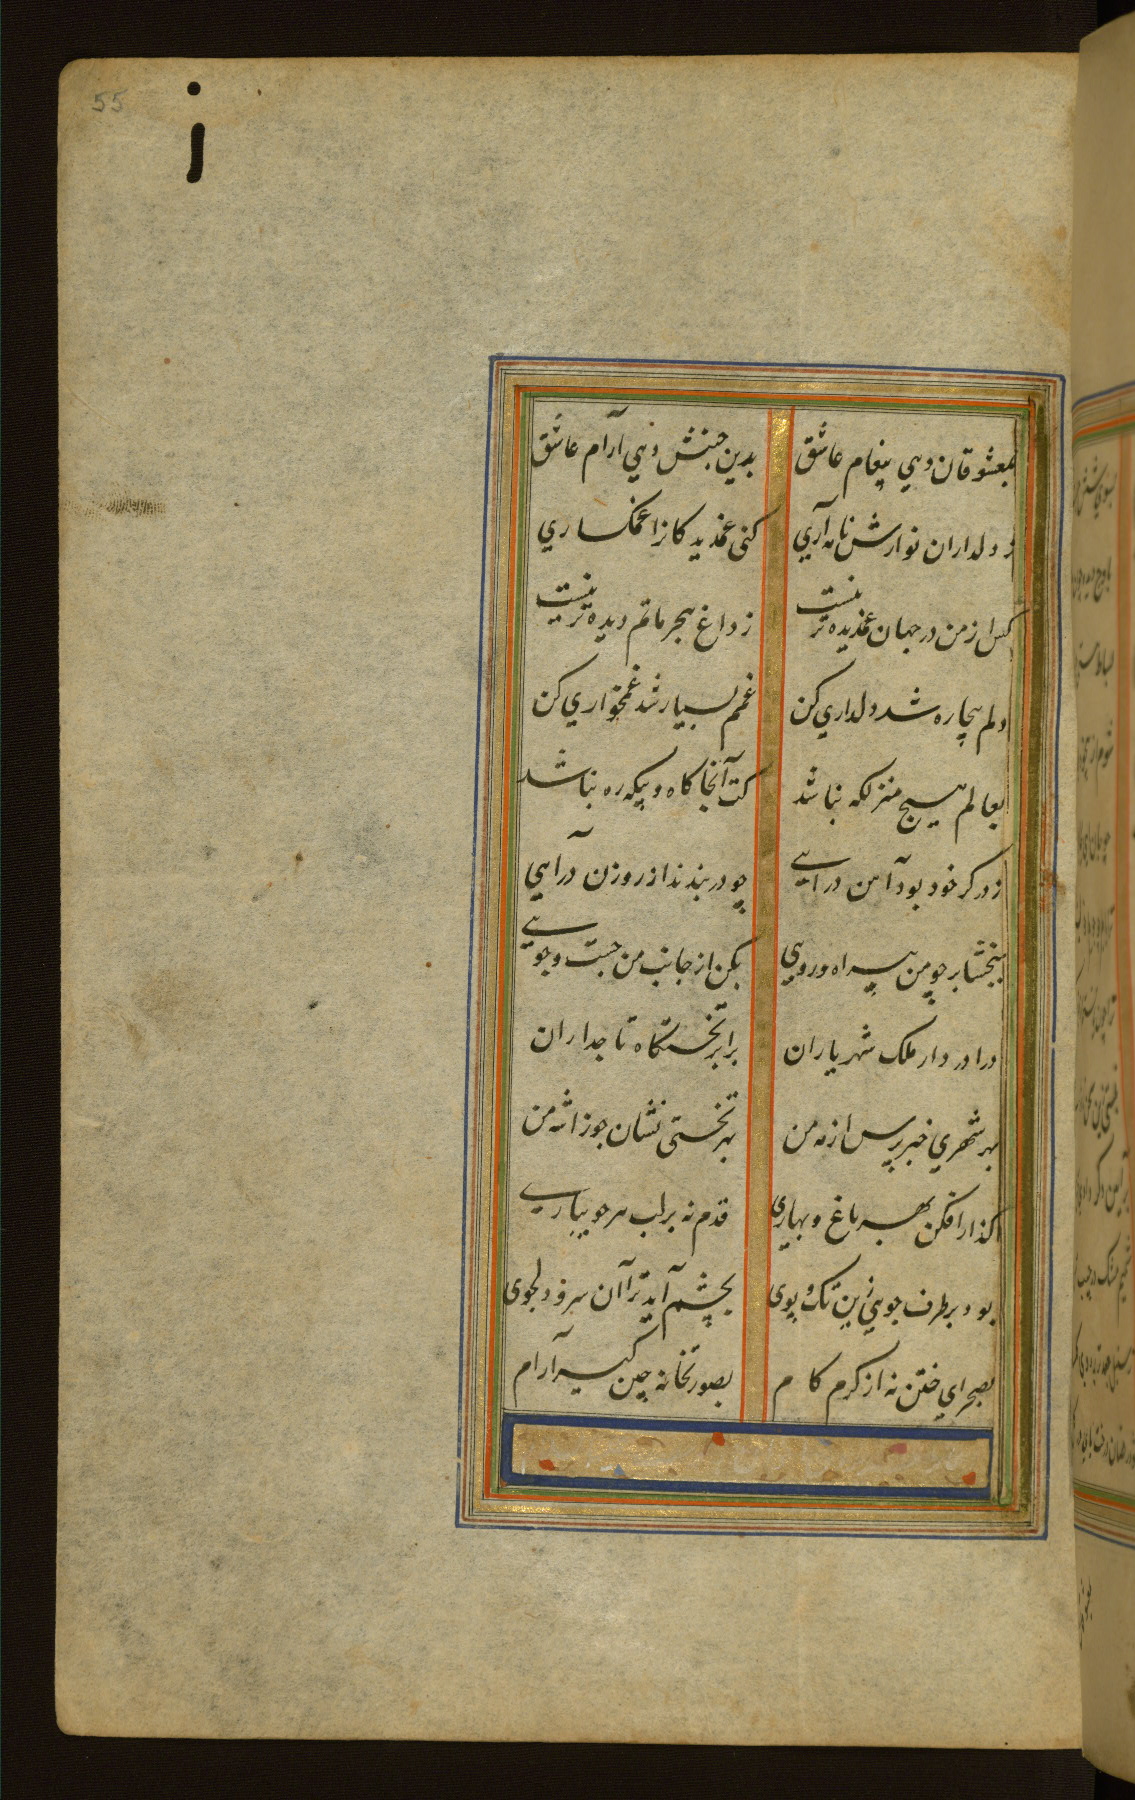 55
بمعشوقان دهی پیغام عاشق بدین جنبش دهی آرام عاشق
ز دلداران نوازش نامه آری کنی غمدیدکانرا غمکساری
کس از من در جهان غمدیده تر نیست ز داغ هجر ماتم دیده تر نیست
دلم بیچاره شد دلداری کن غمم بسیار شد غمخواری کن
بعالم هیچ منزلکه نباشد کت آنجا کاه و بیکه ره نباشد
ز در کر خود بود آهن درآیی چو در بندند از روزن درآیی
ببخشا بر چو من بیراه و رویی بکن از جانب من جست و جویی
درا در دار ملک شهریاران برا بر تختگاه تاجداران
بهر شهری خبر پرس از مه من بهر تختی نشان جو زان شه من
گذار افکن بهر باغ و بهاری قدم نه بر لب هر جویباری
بود بر طرف جویی زین تک و پوی بچشم آید ترا آن سرو دلجوی
بصحرای ختن نه از کرم کام بصورتخانه چین گیر آرام